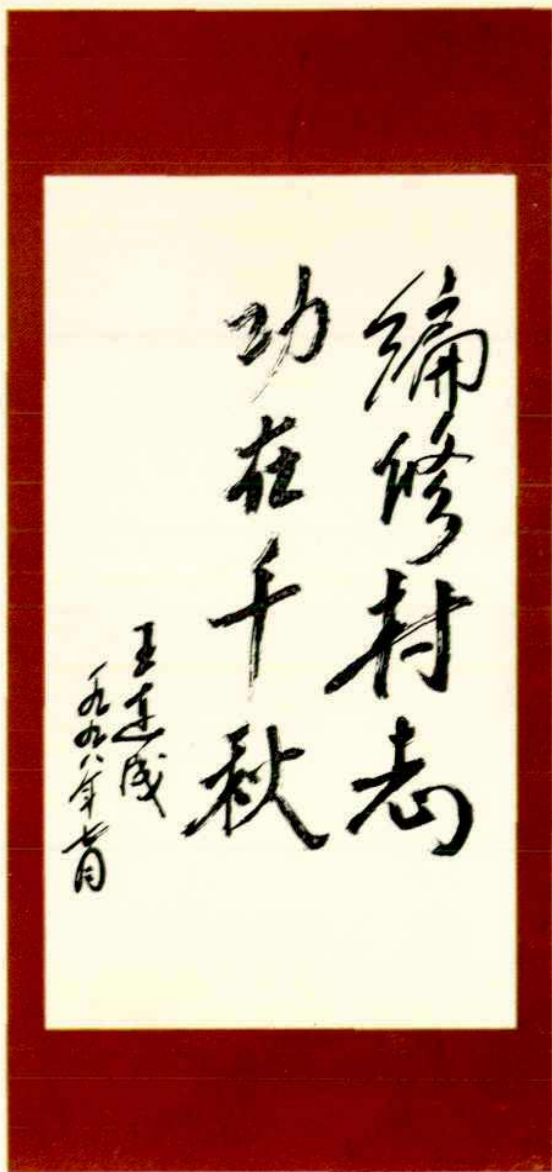 编修村志
功在千秋
王连成
一九九八年七月